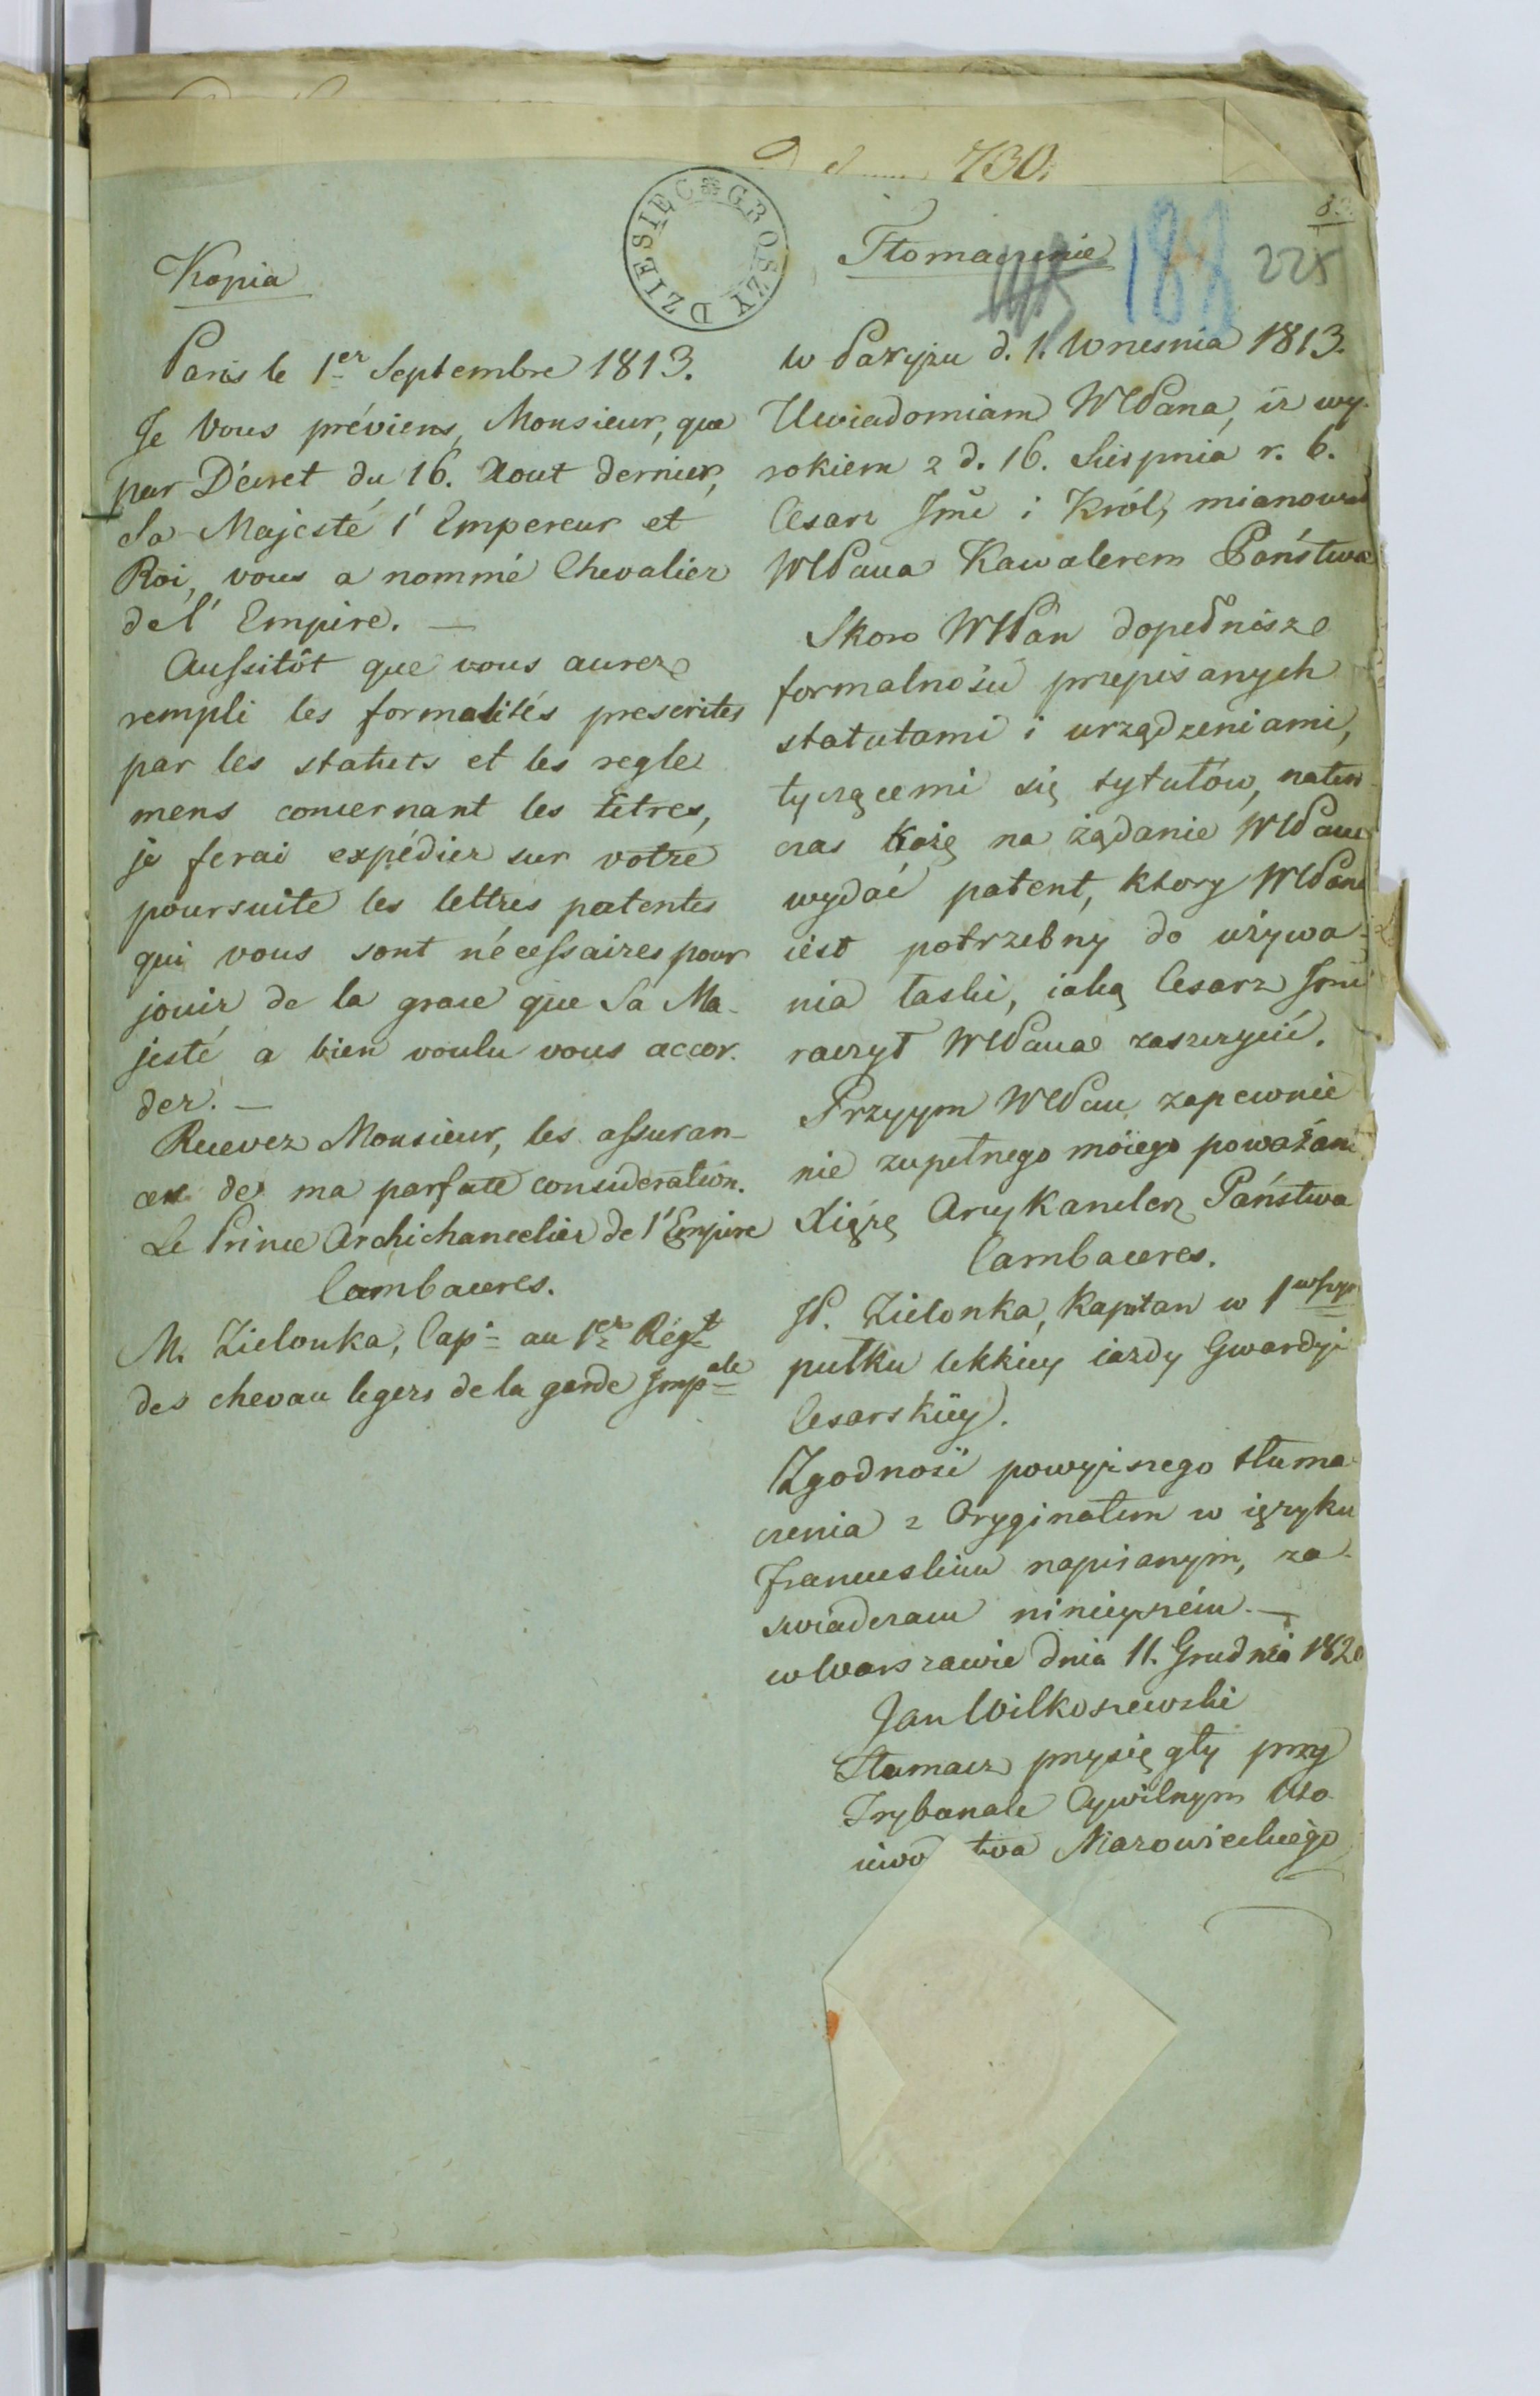 730.
DZIESIĘC GROSZY
225
Kopia
Paris le 1er Septembre 1813.
Je Vous préviens, Monsieur, que
par Décret du 16. Aout dernier,
Sa Majesté l'Empereur et
Roi, vous a nommé Chevalier
de l'Empire. —
Aussitôt que vous aurez
rempli les formalités prescrites
par les statuts et les regle
mens concernant les titres,
je ferai expédier sur votre
poursuite les lettres patentes
qui vous sont nécessaires pour
jouir de la grace que Sa Ma-
jesté a bien voulu vous accor-
der. —
Recevez Monsieur, les assuran-
ces de ma parfaite consideration.
Le Prince Archichancelier de l'Empire
Cambaceres.
M. Zielonka, Capn au 1er Régt
des chevau legers de la garde Impale
Tłomaczenie
w Paryżu d. 1. Września 1813.
Uwiadomiam WWPana, iż wy-
rokiem z d. 16. Sierpnia r. b.
Cesarz Jmć i Król, mianował
WWPana Kawalerem Państwa
Skoro WWPan dopełnisz
formalności przepisanych
statutami i urządzeniami,
tyczącemi się tytułów, naten-
czas każę na żądanie WWPana
wydać patent, ktory WWPanu
iest potrzebny do używa-
nia łaski, iaką Cesarz Jmć
raczył WWPana zaszczycić.
Przyym WWPan zapewnie
nie zupełnego moiego poważani
Xiąże Arcykanclerz Państwa
Cambaceres.
JP. Zielonka, Kapitan w 1wszym
pułku lekkiey iazdy Gwardyi
Cesarskiey.
Zgodność powyższego tłuma-
czenia z Oryginałem w ięzyku
Francuskim napisanym, za-
świadczam ninieyszém. —
w Warszawie dnia 11. Grudnia 1820
Jan Wilkoszewski
Tłumacz przysięgły przy
Trybunale Cywilnym Wo-
iewo twa Mazowieckiego